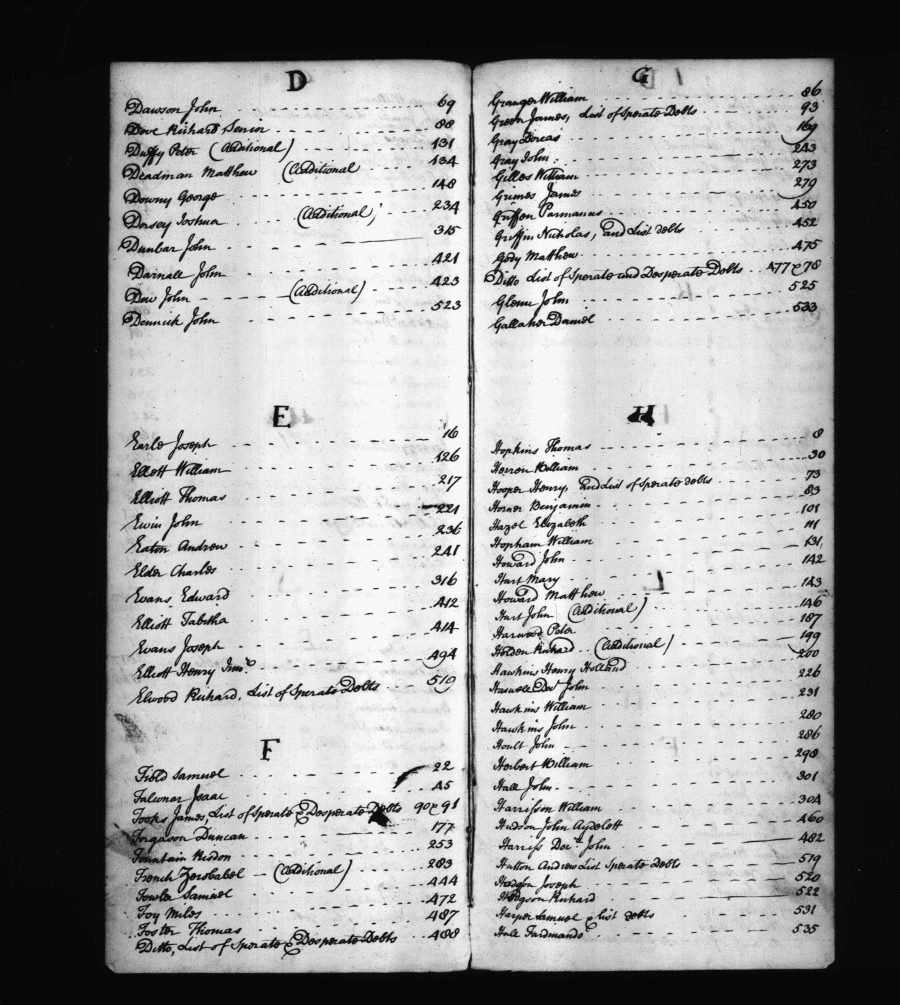 D
Dawson John 69
Dove Richard Senior 88
Duffy Peter (Additional) 131
Deadman Matthew (Additional 134
Downy George 148
Dorsey Joshua (Additional) 234
Dunbar John 315
Darnall John 421
Dew John (Additional) 423
Dennick John 523
E
Earle Joseph 16
Ellett William 126
Elliott Thomas 217
Ewin John 221
Eaton Andrew 236
Elder Charles 241
Evans Edward 316
Elliott Tabitha 412
Evans Joseph 414
Elliott Henry Junr. 494
Elwood Richard, List of Sperate Debts 519
F
Field Samuel 22
Falconar Isaac 45
Tooks James, List of Sperate & Desperate Debts 90 & 91
Forgason Duncan 177
Fountain 253
French Zerobabel (Additional) 283
Fowler Samuel 444
Foy Miles 472
Foster Thomas 487
Ditto, List of Sperate & Desperate Debts 488
G
Granger William 86
Green James, List of Sperate Debts 93
Gray Dorcas 169
Gray John 243
Gilles William 273
Grimes James 279
Griffen Parmanus 450
Griffin Nicholas, and List debts 452
Gody Matthew 475
Ditto List of Sperate and Desperate Debts 477 & 78
Glenn John 525
Gallaher Daniel 533
H
Hopkins Thomas 8
Herren William 30
Hooper Henry, and List of Sperate debts 73
Horner Benjamin 83
Hazel Elizabeth 101
Hopham William 111
Howard John 131
Hart Mary 142
Howard Matthew 143
Hart John (Additional) 146
Harwood Peter 187
Holden Richard (Additional) 199
Hawkins Henry Holland 200
John 226
Hawkins William 231
Hawkins John 280
Hoult John 286
Herbert William 298
Hall John 301
Harrisson William 304
Hudson John Aydelott 460
Harriss Doct. John 482
Hutton Andrew List Sperate Debts 519
Hodgson Joseph 520
Hodgson Richard 522
Harper Samuel & list debts 531
Hall Fardinando 535